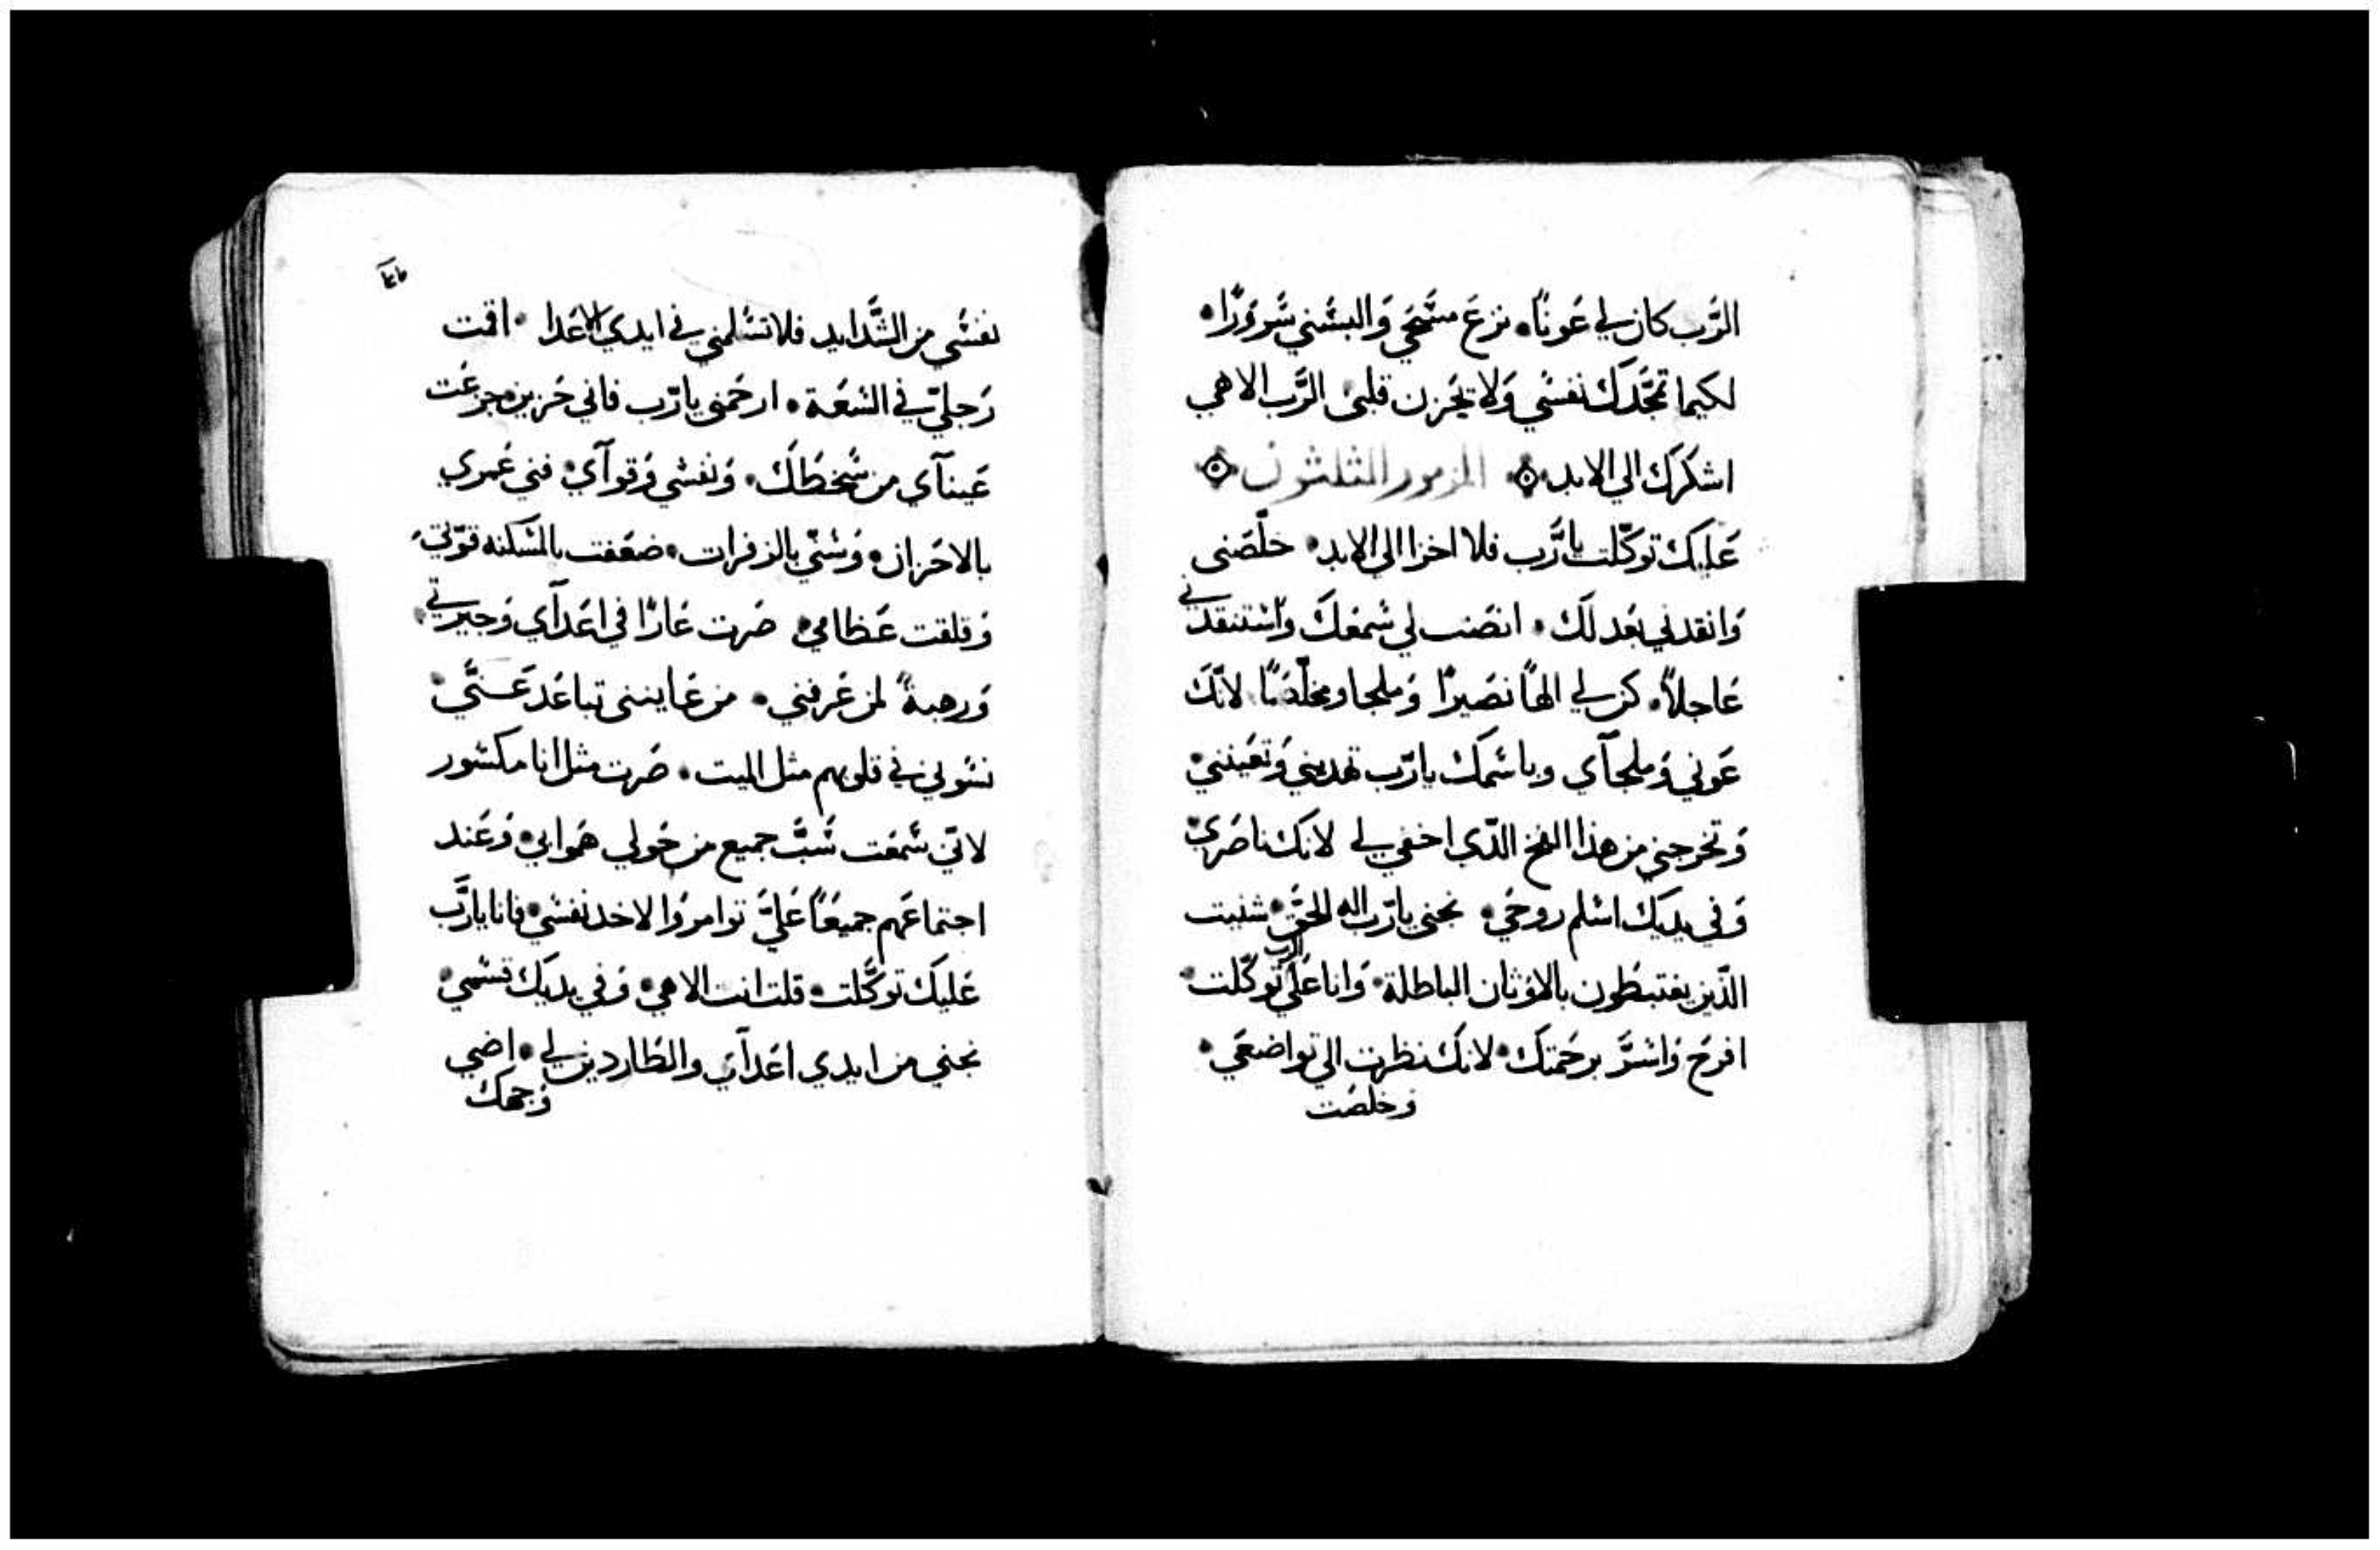 الرَّب كان لي عَونًا۰ نزعَ مسَحي وَالبسَني سَروَرًا۰
لكيما تمجَّدك نفسَي وَلا يحزن قلبى الرَّب الاهي
اشكرك الي الابد۰ المزمور الثلثون
عَليك توكّلت يا رَّب فلا اخزا الي الابد۰ خلّصَنى
وَانقدني بعَدلك۰ انصَت لي سَمعَك وَاسَتنقدني
عَاجلاً۰ كن لي الهًا نصَيرًا وَملجا ومخلّصًا لانّك
عَوني وَملجآي وباسَمك يا رّب تهديني وَتعَينني۰
وَتخرجني من هذا الفخ الذّي اخفي لي لانك ناصَري۰
وَفي يديك اسَلم روحَي۰ نجني يا رّب اله الحقّ۰ شنيت
الذّين يغتبطَون بالاوَثان الباطلة۰ وَانا عَلي الرب توكّلت۰
افرحَ وَاسَرَّ برحَمتك۰ لانك نظرت الي تواضعَي۰
وَخلصَت
نفسَي من الشَّدايد فلا تسَلمني في ايدي الاعَدا ۰ اقمت
رَجليّ في السَعَة۰ ارحَمني يا رّب فاني حَزين۰ جزعَت
عَينآي من سَخطَك۰ وَنفسَي وَقوآي۰ فني عَمري
بالاحَزان۰ وَسَنيّ بالزفرات۰ ضعَفت بالمسَكنه قوّتي۰
وَقلقت عَظامي۰ صَرت عَارًا في اعَدآي وَجيرتي۰
وَرهبةً لمن عَرفني۰ من عَاينني تباعَد عَنّي۰
نسَوني في قلوبهم مثل الميت۰ صَرت مثل انا مكسَور
لانّي سَمعَت سَبَّ جميع من حَولي هَوابي۰ وَعَند
اجتماعَهم جميعًا عَليَّ توامروَا لاخد نفسَي۰ فانا يا رَّب
عَليك توكَّلت۰ قلت انت الاهي۰ وَفي يديك قسَمي۰
نجني من ايدي اعَدآي والطَاردين لي۰ اضي
وَجهك